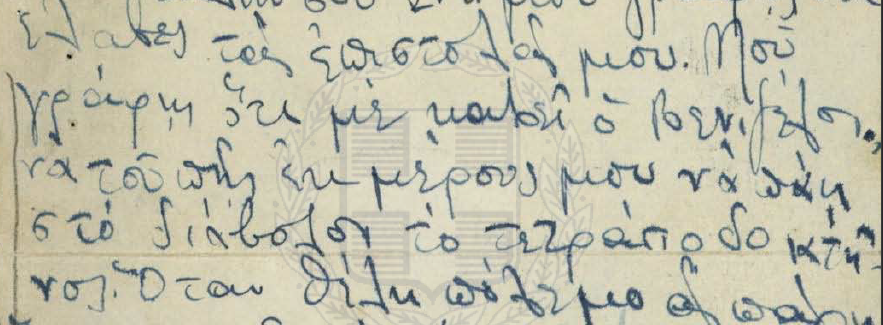 ἔλαβες τὰς ἐπιστολάς μου. Μοῦ
γράφῃς ὅτι μὲ καλεῖ ὁ Βενιζέλος,
νὰ τοῦ πῇς ἐκ μέρους μου νὰ πάῃ
στὸ διάβολον τὸ τετράποδο κτῆ-
νος. Ὅταν θέλῃ πόλεμο ἂς πάῃ